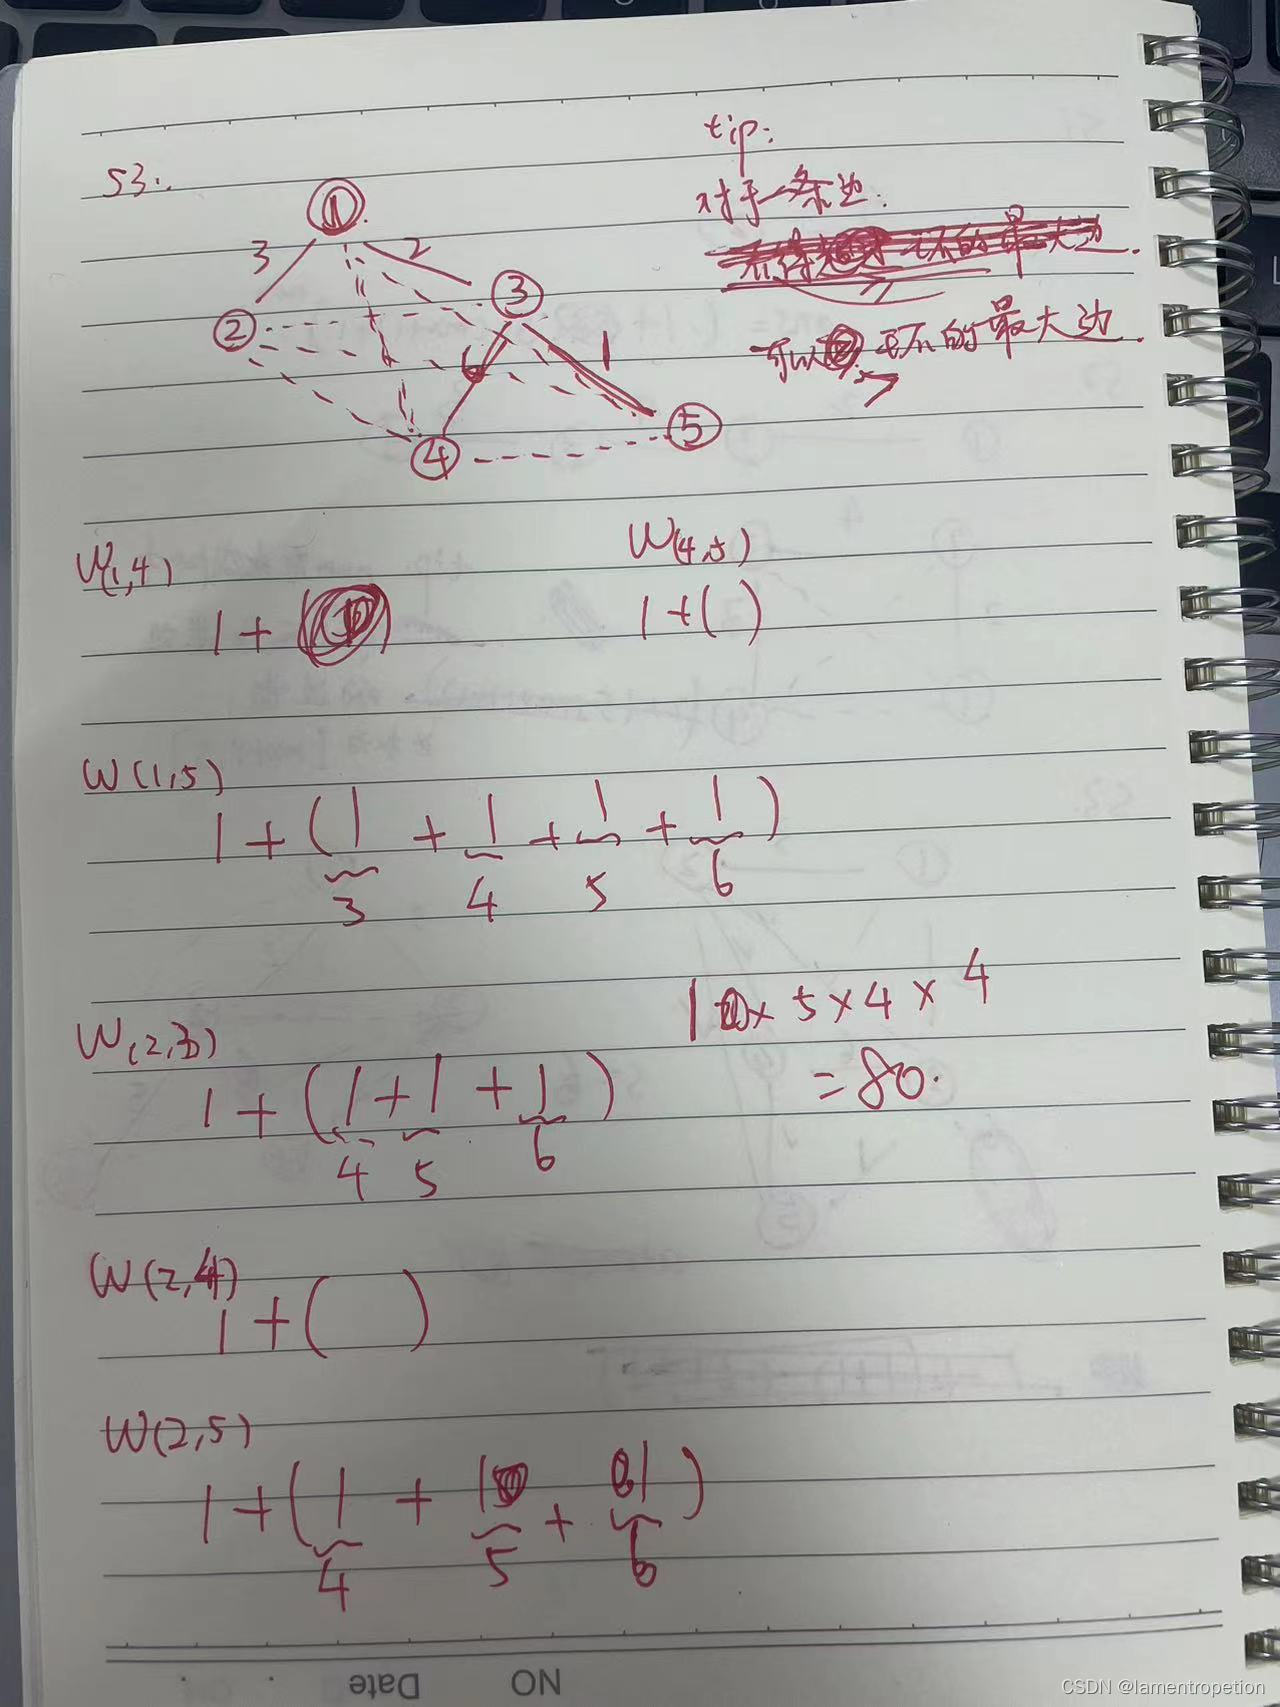 S3:
tip:
对于一条边:
①
3
2
环的最大边.
②
③
可以 环的最大边.
6
1
④
⑤
W(1,4)
W(4,5)
1+
1+( )
W(1,5)
1+(1+1+1+1)
3 4 5 6
1 x 5 x 4 x 4
=80.
W(2,3)
1+(1+1+1)
4 5 6
W(2,4)
1+( )
W(2,5)
1+(1+1+1)
4 5 6
Date NO
CSDN @lamentropetion